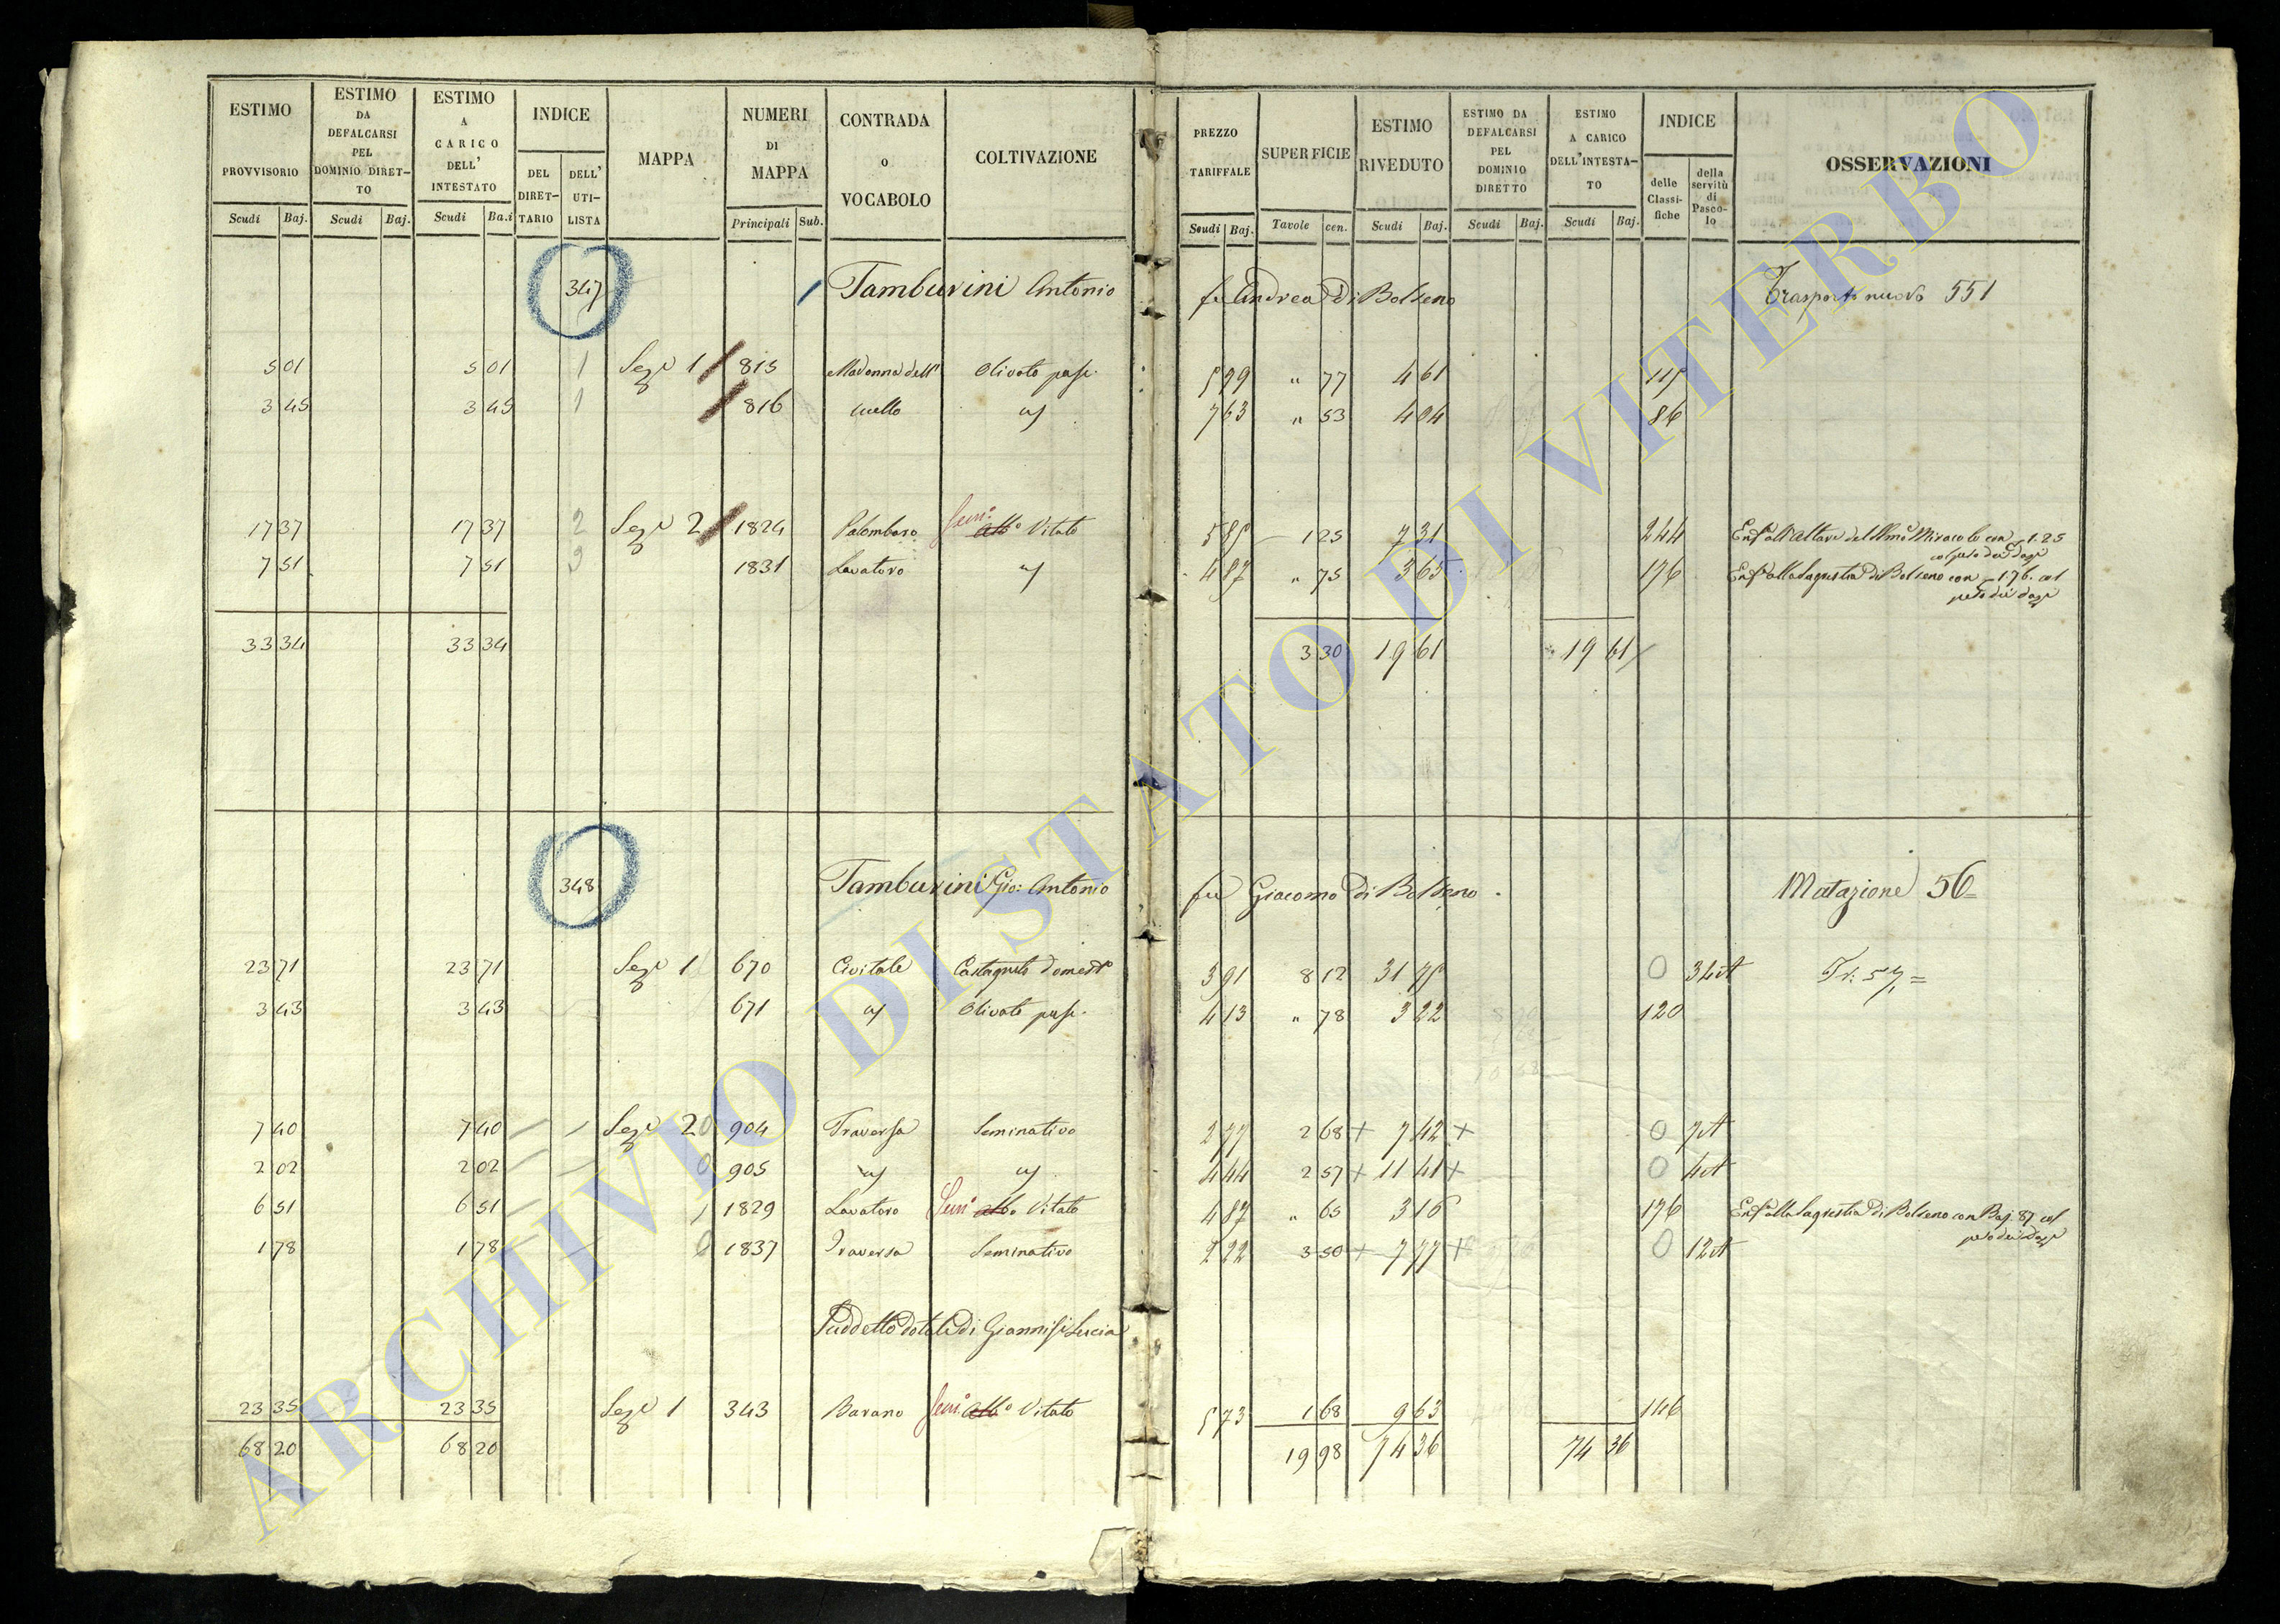 ESTIMO PROVVISORIO Scudi Baj.
ESTIMO DA DEFALCARSI PEL DOMINIO DIRETTO Scudi Baj.
ESTIMO A CARICO DELL' INTESTATO Scudi Ba.i
INDICE DEL DIRET-TARIO DELL' UTI-LISTA
MAPPA
NUMERI DI MAPPA Principali Sub.
CONTRADA o VOCABOLO
COLTIVAZIONE
PREZZO TARIFFALE Scudi Baj.
SUPERFICIE Tavole cen.
ESTIMO RIVEDUTO Scudi Baj.
ESTIMO DA DEFALCARSI PEL DOMINIO DIRETTO Scudi Baj.
ESTIMO A CARICO DELL'INTESTA-TO Scudi Baj.
INDICE delle Classi-fiche della servitù di Pasco-lo
OSSERVAZIONI
347 Tamburini Antonio fu Andrea Di Bolseno Trasporto nuovo 551
5 01 5 01 1 Sez.e 1 815 Madonna dell' Olivato pas. 5 99 " 77 4 61 115
3 45 3 45 1 816 uello 7 63 " 53 4 04 86
17 37 17 37 2 Sez.e 2 1824 Palombaro Sem.o Vitato 5 85 1 25 7 31 244 Enf. all'Altare del SSmo Miracolo con 1.25
col peso dei dazi
7 51 7 51 3 1831 Lavatoro 4 87 " 75 3 65 176 Enf. alla Sagrestia Di Bolseno con 1.76. col
peso dei dazi
33 34 33 34 3 30 19 61 19 61
348 Tamburini Gio: Antonio fu Giacomo di Bolseno. Mutazione 56=
23 71 23 71 Sez.e 1 670 Civitale Castagneto domest.o 3 91 8 12 31 75 0 34 A Tr: 57.=
3 43 3 43 671 Olivato pas. 4 13 " 78 3 22 120
7 40 7 40 Sez.e 2 0 904 Traversa Seminativo 2 77 2 68 + 7 42 + 0 7 A
2 02 2 02 0 905 4 44 2 57 + 11 41 + 0 4 A
6 51 6 51 1 1829 Lavatoro Sem.o Vitato 4 87 " 65 3 16 176 Enf. alla Sagrestia Di Bolseno con Baj. 87 col
peso dei dazi
1 78 1 78 0 1837 Traversa Seminativo 2 22 3 50 + 7 77 + 0 12 A
Suddetto dotale di Giannisi Lucia
23 35 23 35 Sez.e 1 343 Barano Sem.o Vitato 5 73 1 68 9 63 146
68 20 68 20 19 98 74 36 74 36
ARCHIVIO DI STATO DI VITERBO